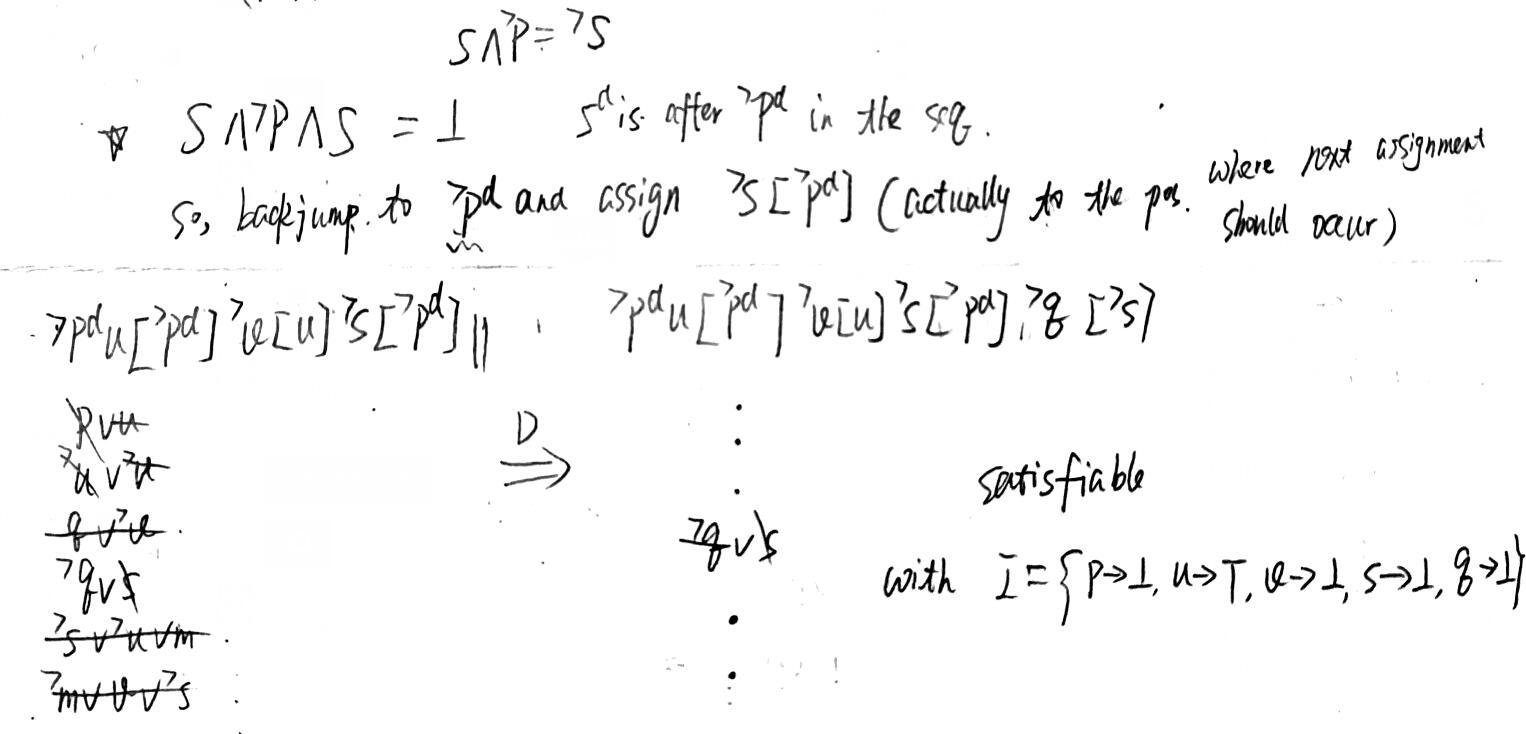 S∧¬P = ¬S
S∧¬P∧S = ⊥ s^d is after ¬p^d in the seq.
so, backjump to ¬p^d and assign ¬s[¬p^d] (actually to the pos. where next assignment
should occur)
¬p^d u[¬p^d] ¬v[u] ¬s[¬p^d] || ¬p^d u[¬p^d] ¬v[u] ¬s[¬p^d] ¬q[¬s]
P∨u
D
⟹
q∨¬v
satisfiable
¬q∨s
¬q∨s
with I={p→⊥, u→T, v→⊥, s→⊥, q→⊥}
¬s∨¬u∨m
¬m∨v∨¬s